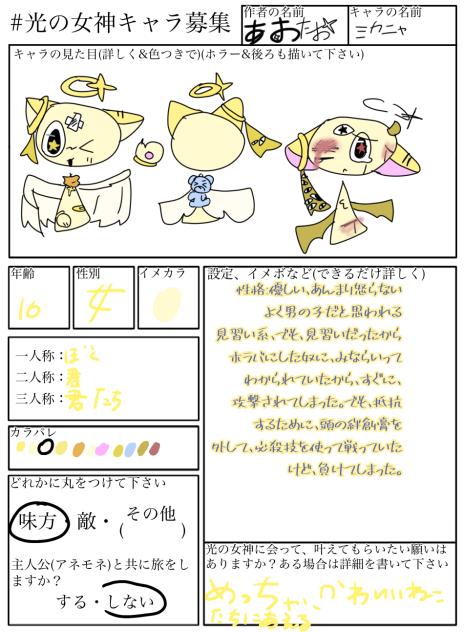 #光の女神キャラ募集
作者の名前
あおたお☆
キャラの名前
ミカニャ
キャラの見た目(詳しく&色つきで)(ホラー&後ろも描いて下さい)
年齢
10
性別
女
イメカラ
一人称：ぼく
二人称：君
三人称：君たち
カラパレ
どれかに丸をつけて下さい
味方・敵・その他
( )
主人公(アネモネ)と共に旅をし
ますか？
する・しない
設定、イメボなど(できるだけ詳しく)
性格:優しい、あんまり怒らない
よく男の子だと思われる
見習い系、でも、見習いだったから
ホラバにした奴に、みならいって
わかられていたから、すぐに、
攻撃されてしまった。でも、抵抗
するために、頭の絆創膏を
外して、必殺技を使って戦っていた
けど、負けてしまった。
光の女神に会って、叶えてもらいたい願いは
ありますか？ある場合は詳細を書いて下さい
めっちゃ、かわいいねこ
たちに会える